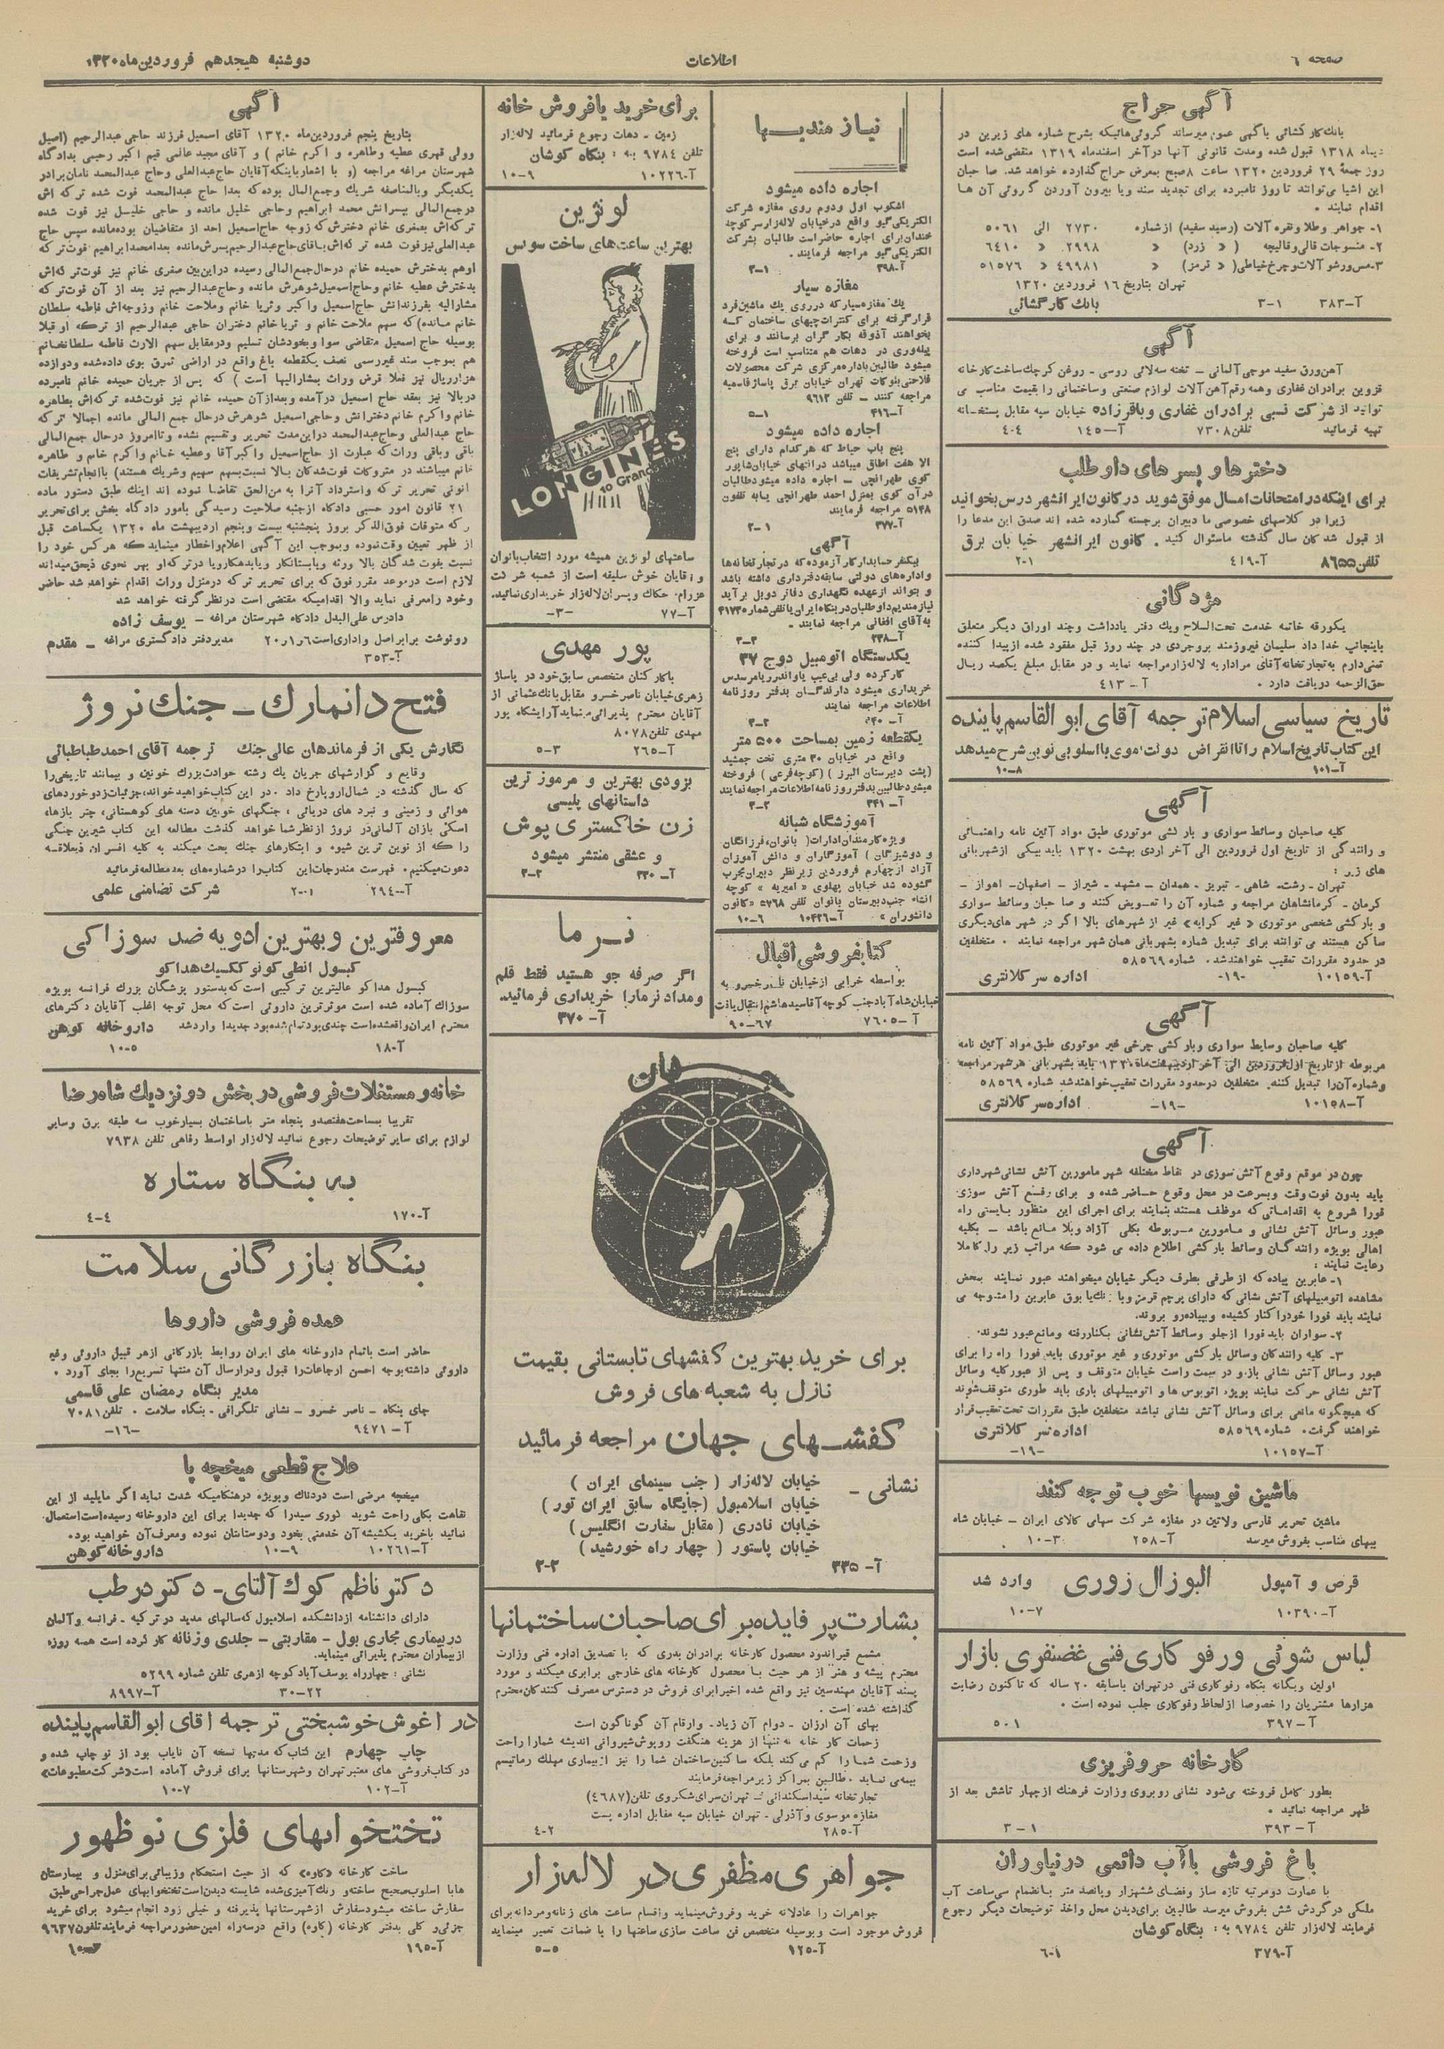 صفحه ٦
اطلاعات
دوشنبه هیجدهم فروردین‌ماه ۱۳۲۰
آگهی حراج
بانك كار گشائی باگهی عموم میرساند گروئی‌هائیكه بشرح شماره های زیرین در
دیماه ۱۳۱۸ قبول شده ومدت قانونی آنها درآخر اسفندماه ۱۳۱۹ منقضی‌شده است
روز جمعهٔ ۲۹ فروردین ۱۳۲۰ ساعت ۸صبح بمعرض حراج گذارده خواهد شد. صا حبان
این اشیا می‌توانند تا روز نامبرده برای تجدید سند ویا بیرون آوردن گروئی آن ها
اقدام نمایند .
۱- جواهر وطلا ونقره آلات (رسید سفید) ازشماره ۲۷۳۰ الی ۵۰٦۱
۲- منسوجات قالی وقالیچه ( « زرد) « ۲۹۹۸ « ٦٤۱۰
۳-مس‌ورشو آلات‌وچرخ‌خیاطی( « قرمز) « ٤۹۹۸۱ « ۵۱۵۷٦
تهران بتاریخ ۱٦ فروردین ۱۳۲۰
آ-۳۸۳ ۱-۳ بانك كارگشائی
آگهی
آهن‌ورق سفید موجی آلمانی – تخته سه‌لائی روسی - روغن كرچك‌ساخت‌كارخانه
قزوین برادران غفاری وهمه رقم‌آهن آلات لوازم صنعتی وساختمانی را بقیمت مناسب می
توانید از شركت نسبی برادران غفاری وباقرزاده خیابان سپه مقابل پستخانه
تهیه فرمائید تلفن۷۳۰۸ آ-۱٤۵ ٤-٤
دخترها و پسر های داوطلب
برای اینكه‌در امتحانات امسال موفق‌شوید در كانون ایرانشهر درس بخوانید
زیرا در كلاسهای خصوصی ما دبیران برجسته گمارده شده اند صدق این مدعا را
از قبول شدگان سال گذشته ماسئوال كنید . كانون ایرانشهر خیابان برق
تلفن۸٦۵۵ آ-٤۱۹ ۱-۲
مژدگانی
یكورقه خاتمه خدمت تحت‌السلاح ویك دفتر یادداشت وچند اوراق دیگر متعلق
باینجانب خدا داد سلیمان فیروزمند بروجردی در چند روز قبل مفقود شده ازپیدا كننده
تمنی‌دارم به‌تجارتخانه‌آقای مراد‌اریه لاله‌زار‌مراجعه نماید و در مقابل مبلغ یكصد ریال
حق‌الزحمه دریافت دارد . آ - ٤۱۳
تاریخ سیاسی اسلام ترجمه آقای ابوالقاسم پاینده
این كتاب تاریخ اسلام را تا انقراض دولت اموی با اسلوبی نوین شرح میدهد
آ-۱۰۱ ۸-۱۰
آگهی
كلیه صاحبان وسائط سواری و بار كشی موتوری طبق مواد آئین نامه راهنمائی
و رانندگی از تاریخ اول فروردین الی آخر اردی بهشت ۱۳۲۰ باید بیكی ازشهربانی
های زیر :
تهران - رشت- شاهی - تبریز - همدان – مشهد - شیراز - اصفهان- اهواز -
كرمان - كرمانشاهان مراجعه و شماره آن را تعویض كنند و صاحبان وسائط سواری
و باركشی شخصی موتوری « غیر كرایه» غیر از شهرهای بالا اگر در شهر های‌دیگری
ساكن هستند می توانند برای تبدیل شماره بشهربانی همان شهر مراجعه نمایند . متخلفین
در حدود مقررات تعقیب خواهندشد. شماره ۵۸۵٦۹
آ-۱۰۱۵۹ -۱۹- اداره سر كلانتری
آگهی
كلیه صاحبان وسایط سواری وباركشی چرخی غیر موتوری طبق مواد آئین نامه
مربوطه از تاریخ اول فروردین الی آخر اردیبهشت‌ماه ۱۳۲۰ باید بشهربانی هرشهرمراجعه
وشماره‌آن‌را تبدیل كنند. متخلفین درحدود مقررات تعقیب‌خواهندشد شماره ۵۸۵٦۹
آ-۱۰۱۵۸ -۱۹- اداره‌سر كلانتری
آگهی
چون در موقع وقوع آتش سوزی در نقاط مختلفه شهر مامورین آتش نشانی‌شهرداری
باید بدون فوت وقت وبسرعت در محل وقوع حاضر شده و برای رفع آتش سوزی
فورا شروع به اقداماتی‌كه موظف هستند بنمایند برای اجرای این منظور بایستی راه
عبور وسائل آتش نشانی و مامورین مربوطه بكلی آزاد وبلا مانع باشد – بكلیه
اهالی بویژه رانندگان وسائط باركشی اطلاع داده می شود كه مراتب زیر را كاملا
رعایت نمایند :
۱-عابرین پیاده كه از طرفی بطرف دیگر خیابان میخواهند عبور نمایند بمحض
مشاهده اتومبیلهای آتش نشانی كه دارای پرچم قرمز ویا زنك‌یا بوق عابرین را متوجه می
نمایند باید فورا خودرا كنار كشیده وبپیاده‌رو بروند.
۲-سواران باید فورا ازجلو وسائط آتش‌نشانی بكناررفته ومانع‌عبور نشوند.
۳- كلیه رانندگان وسائل باركشی موتوری و غیر موتوری باید فورا راه را برای
عبور وسائل آتش نشانی باز و در سمت راست خیابان متوقف و پس از عبور كلیه وسائل
آتش نشانی حركت نمایند بویژه اتوبوس ها و اتومبیلهای باری باید طوری متوقف‌شوند
كه هیچگونه مانعی برای وسائل آتش نشانی نباشد متخلفین طبق مقررات تحت‌تعقیب‌قرار
خواهند گرفت. شماره ۵۸۵٦۹ اداره‌سر كلانتری
آ-۱۰۱۵۷ -۱۹-
ماشین نویسها خوب توجه كنند
ماشین تحریر فارسی ولاتین در مغازه شركت سهامی كالای ایران – خیابان شاه
ببهای مناسب بفروش میرسد آ-۲۵۸ ۳-۱۰
قرص و آمپول البوزال زوری وارد شد
آ-۱۰۳۹۰ ۷-۱۰
لباس شوئی ورفو كاری فنی غضنفری بازار
اولین ویگانه بنگاه رفوكاری فنی درتهران باسابقه ۲۰ ساله كه تاكنون رضایت
هزارها مشتریان را خصوصا ازلحاظ رفوكاری جلب نموده است .
آ-۳۹۷ ۱-۵
كارخانه حروفریزی
بطور كامل فروخته می‌شود نشانی روبروی وزارت فرهنك ازچهار تاشش بعد از
ظهر مراجعه نمائید .
آ-۳۹۳ ۱-۳
باغ فروشی با آب دائمی در نیاوران
با عمارت دومرتبه تازه ساز وفضای ششهزار وپانصد متر بانضمام سی‌ساعت آب
ملكی در گردش شش بفروش میرسد طالبین برای‌دیدن محل واخذ توضیحات دیگر رجوع
فرمایند لاله‌زار تلفن ۹۷۸٤ به : بنگاه كوشان
آ-۳۷۹ ۱-٦
نیاز مندیها
اجاره داده میشود
اشكوب اول ودوم روی مغازه شركت
الكتریكی‌گیو واقع درخیابان لاله‌زارسركوچه
خندان‌برای اجاره حاضراست طالبان بشركت
الكتریكی گیو مراجعه فرمایند.
آ-۳۹۸ ۱-۳
مغازه سیار
یك مغازه‌سیاركه درروی یك ماشین‌فرد
قرارگرفته برای كنترات‌چیهای ساختمان كه
بخواهند آذوقه بكار گران برسانند و برای
پیله‌وری در دهات هم متناسب است فروخته
میشود طالبین‌باداره‌مركزی شركت محصولات
فلاحتی‌بلوكات تهران خیابان برق پاساژ‌قاسمیه
مراجعه كنند – تلفن ۹٦۱۲
آ-٤۱٦ ۱-۵
اجاره داده میشود
پنج باب حیاط كه هركدام دارای پنج
الا هفت اطاق میباشد درانتهای خیابان‌شاپور
كوی طهرانچی – اجاره داده میشودطالبان
درآن كوی بمنزل احمد طهرانچی یا به تلفون
۵۱٤۸ مراجعه فرمایند
آ-۳۷۷ ۱-۲
آگهی
بیكنفر حسابدار كار آزموده كه در تجارتخانه‌ها
و اداره‌های دولتی سابقه‌دفترداری داشته باشد
و بتواند ازعهده نگهداری دفاتر دوبل برآید
نیازمندیم داوطلبان در بنگاه ایران یا تلفن شماره ٤۱۷۳
به‌آقای افغانی مراجعه نمایند .
آ-۳۳۸ ۲-۳
یكدستگاه اتومبیل دوج ۳۷
كاركرده ولی بی‌عیب یا واندرر یا مرسدس
خریداری میشود دارندگان بدفتر روزنامه
اطلاعات مراجعه نمایند
۲-۳
یكقطعه زمین بمساحت ۵۰۰ متر
واقع در خیابان ۳۰ متری تخت جمشید
(پشت دبیرستان البرز ) (كوچه‌فرعی ) فروخته
میشودطالبین بدفتر روز نامه اطلاعات مراجعه نمایند
آ- ۳٤۱ ۲-۳
آموزشگاه شبانه
ویژه كارمندان ادارات( بانوان، فرزانگان
و دوشیزگان ) آموزگاران و دانش آموزان
آزاد از چهارم فروردین زیر نظر دبیران مجرب
گشوده شد خیابان پهلوی « امیریه » كوچه
انشاء جنب‌دبیرستان بانوان تلفن ۵۷٦۸ «كانون
دانشوران » آ-۱۰٤۲٦ ٦-۱۰
كتابفروشی اقبال
بواسطه خرابی ازخیابان ناصرخسرو به
خیابان‌شاه‌آباد‌جنب كوچه آقاسیدهاشم انتقال‌یافت
آ-۷٦۰۵ ٦۷-۹۰
برای خرید یافروش خانه
زمین - دهات رجوع فرمائید لاله‌زار
تلفن ۹۷۸٤ به : بنگاه كوشان
آ-۱۰۲۲٦ ۹-۱۰
لونژین
بهترین ساعت‌های ساخت سویس
LONGINES
10 Grands Prix
ساعتهای لونژین همیشه مورد انتخاب‌بانوان
و آقایان خوش سلیقه است از شعبه شركت
عزرا‌م. حكاك وپسران لاله‌زار خریداری‌نمائید.
آ-۷۷ -۳-
پور مهدی
باكاركنان متخصص سابق‌خود در پاساژ
زهری‌خیابان ناصرخسرو مقابل‌بانك‌عثمانی از
آقایان محترم پذیرائی‌مینماید آرایشگاه پور
مهدی تلفن۸۰۷۸
آ-۲٦۵ ۳-۵
بزودی بهترین و مرموز ترین
داستانهای پلیسی
زن خاكستری پوش
و عشقی منتشر میشود
آ-۳۳۰ ۲-۳
نرما
اگر صرفه جو هستید فقط قلم
ومداد نرمارا خریداری فرمائید.
آ-۳۷۰
جهان
برای خرید بهترین كفشهای تابستانی بقیمت
نازل به شعبه های فروش
كفشهای جهان مراجعه فرمائید
نشانی –
خیابان لاله‌زار ( جنب سینمای ایران )
خیابان اسلامبول (جایگاه سابق ایران تور )
خیابان نادری ( مقابل سفارت انگلیس )
خیابان پاستور ( چهار راه خورشید )
آ-۳۳۵ ۲-۳
بشارت پر فایده برای صاحبان ساختمانها
مشمع قیراندود محصول كارخانه برادران بدری كه با تصدیق اداره فنی وزارت
محترم پیشه و هنر از هر حیث با محصول كارخانه های خارجی برابری میكند و مورد
پسند آقایان مهندسین نیز واقع شده اخیرا برای فروش در دسترس مصرف كنندگان‌محترم
گذاشته شده است .
بهای آن ارزان - دوام آن زیاد- وارقام آن گوناگون است
زحمات كار خانه نه تنها از هزینه هنگفت روپوش‌شیروانی اندیشه شمارا راحت
وزحمت شمارا كم می كند بلكه ساكنین‌ساختمان شما را نیز ازبیماری مهلك رماتیسم
بیمه می نماید . طالبین بمراكز زیر مراجعه فرمایند
تجارتخانه سید‌اسكندانی – تهران‌سرای‌شكروی تلفن(٤٦۸۷)
مغازه موسوی و آذرلی - تهران خیابان سپه مقابل اداره پست
آ-۲۸۵ ۲-٤
جواهری مظفری در لاله‌زار
جواهرات را عادلانه خرید وفروش‌مینماید واقسام ساعت های زنانه‌ومردانه‌برای
فروش موجود است وبوسیله متخصص فن ساعت سازی ساعتها را با ضمانت تعمیر مینماید
آ-۱۲۵ ۵-۵
آگهی
بتاریخ پنجم فروردین‌ماه ۱۳۲۰ آقای اسمعیل فرزند حاجی عبدالرحیم (اصیل
وولی قهری عطیه وطاهره و اكرم خانم ) و آقای مجید عالمی قیم اكبر رحیمی بدادگاه
شهرستان مراغه مراجعه (و با اشعار باینكه آقایان حاج‌عبدالعلی وحاج عبدالمحمد نامان‌برادر
یكدیگر وبالمناصفه شریك وجمع‌المال بوده‌كه بعدا حاج عبدالمحمد فوت شده تركه اش
درجمع‌المالی بپسرانش محمد ابراهیم وحاجی خلیل مانده و حاجی خلیل نیز فوت شده
تركه‌اش بصغری خانم دخترش‌كه زوجه حاج‌اسمعیل احد از متقاضیان بوده‌مانده سپس حاج
عبدالعلی‌نیز فوت شده تركه اش‌باقای‌حاج‌عبدالرحیم‌پسرش‌مانده بعدا‌محمدابراهیم فوت‌تركه
اوهم بدخترش حمیده خانم درحال‌جمع‌المالی رسیده دراین‌بین صغری خانم نیز فوت‌تركه‌اش
بدخترش عطیه خانم وحاج‌اسمعیل‌شوهرش مانده وحاج عبدالرحیم نیز بعد از آن فوت‌تركه
مشارالیه بفرزندانش حاج‌اسمعیل واكبر وثریا خانم وملاحت خانم وزوجه‌اش فاطمه سلطان
خانم مانده)كه سهم ملاحت خانم و ثریا خانم دختران حاجی عبدالرحیم از تركه او قبلا
بوسیله حاج اسمعیل متقاضی سوا وبخودشان تسلیم ودرمقابل سهم الارث فاطمه سلطانخانم
هم بموجب سند غیررسمی نصف یكقطعه باغ واقع در اراضی تمرق بوی داده‌شده ودوازده
هزارریال نیز فعلا قرض وراث بمشارالیها است ) كه پس از جریان حمیده خانم نامبرده
دربالا نیز بعقد حاج اسمعیل درآمده وبعدازآن حمیده خانم نیز فوت‌شده تركه اش بطاهره
خانم واكرم خانم دخترانش وحاجی‌اسمعیل شوهرش در حال جمع المالی مانده اجمالا تركه
حاج عبدالعلی وحاج‌عبدالمحمد دراین‌مدت تحریر و تقسیم نشده وتاامروز درحال جمع‌المالی
باقی وباقی وراث‌كه عبارت از حاج‌اسمعیل واكبرآقا وعطیه خانم واكرم خانم و طاهره
خانم میباشند در متروكات فوت‌شدگان بالا نسبت‌بسهم سهیم وشریك هستند) باانجام‌تشریفات
قانونی تحریر تركه واسترداد آنرا به من‌الحق تقاضا نموده اند اینك طبق دستور ماده
۲۱ قانون امور حسبی دادگاه ازجنبه صلاحیت رسیدگی بامور دادگاه بخش برای‌تحریر
تركه متوفات فوق‌الذكر بروز پنجشنبه بیست وپنجم اردیبهشت ماه ۱۳۲۰ یكساعت قبل
از ظهر تعیین وقت‌نموده وبموجب این آگهی اعلام‌واخطار مینمایدكه هركس خود را
نسبت بفوت شدگان بالا ورثه ویابستانكار ویابدهكارویا درتركه‌او بهر نحوی ذیحق‌میداند
لازم است درموعد مقرر فوق‌كه برای تحریر تركه درمنزل وراث اقدام خواهد شد حاضر
وخود رامعرفی نماید والا اقدامیكه مقتضی است درنظرگرفته خواهد شد
دادرس علی‌البدل دادگاه شهرستان مراغه – یوسف زاده
رونوشت برابراصل واداری‌است مدیردفتر دادگستری مراغه – مقدم
آ-۳۵۳
فتح دانمارك – جنك نروژ
نگارش یكی از فرماندهان عالی جنك ترجمه آقای احمد طباطبائی
وقایع و گزارشهای جریان یك رشته حوادث‌بزرك خونین و بیمانند تاریخی‌را
كه سال گذشته در شمال‌اروپا‌رخ داد. در این كتاب‌خواهیدخواند،جزئیات‌زدوخوردهای
هوائی و زمینی و نبرد های دریائی ، جنگهای خونین دسته های كوهستانی، چتر بازها،
اسكی بازان آلمانی‌در نروژ ازنظرشما خواهد گذشت مطالعه این كتاب شیرین جنگی
را كه از نوین ترین شیوه و ابتكارهای جنك بحث میكند به كلیه افسران ذیعلاقه
دعوت‌میكنیم. فهرست مندرجات‌این كتاب‌را درشماره‌های بعدمطالعه‌فرمائید
آ-۲۹٤ ۱-۲ شركت تضامنی علمی
معروفترین و بهترین ادویه ضد سوزاكی
كپسول انطی‌گونوككسیك‌هداكو
كپسول هداكو عالیترین تركیبی است‌كه‌بدستور پزشگان بزرك فرانسه بویژه
سوزاك آماده شده است موثرترین داروئی است‌كه محل توجه اغلب آقایان دكترهای
محترم ایران‌واقع‌شده‌است چندی‌بودتمام‌شده‌بود جدیدا واردشد داروخانه كوهن
آ-۱۸۰ ۵-۱۰
خانه و مستغلات فروشی در بخش دو نزدیك شاه‌رضا
تقریبا بمساحت‌هفتصدو پنجاه متر باساختمان بسیارخوب سه طبقه برق وسایر
لوازم برای سایر توضیحات رجوع نمائید لاله‌زار اواسط رفاهی تلفن ۷۹۳۸
به بنگاه ستاره
آ-۱۷۰ ٤-٤
بنگاه بازرگانی سلامت
عمده فروشی داروها
حاضر است باتمام داروخانه های ایران روابط بازرگانی ازهر قبیل داروئی وغیر
داروئی داشته‌بوجه احسن ارجاعات‌را قبول ودرارسال آن منتها تسریع‌را بجای آورد .
مدیر بنگاه رمضان علی قاسمی
جای بنگاه - ناصر خسرو - نشانی تلگرافی - بنگاه سلامت . تلفن۷۰۸۱
آ-۹٤۷۱ -۱٦-
علاج قطعی میخچه پا
میخچه مرضی است دردناك وبویژه درهنگامیكه شدت نماید اگر مایلید از این
نقاهت بكلی راحت شوید كوری سیدرا كه جدیدا برای این داروخانه رسیده‌است‌استعمال
نمائید باخرید یكشیشه آن خدمتی بخود ودوستانتان نموده ومعرف‌آن خواهید بود.
آ-۱۰۲٦۱ ۹-۱۰ داروخانه‌كوهن
دكتر ناظم كوك آلتای- دكتور در طب
دارای دانشنامه ازدانشكده اسلامبول كه‌سالهای مدید در تركیه - فرانسه و آلمان
در بیماری مجاری بول - مقاربتی - جلدی وزنانه كار كرده است همه روزه
از بیماران محترم پذیرائی مینماید.
نشانی : چهارراه یوسف‌آباد كوچه ازهری تلفن شماره ۵۲۹۹
آ-۸۹۹۷ ۲۲-۳۰
در اغوش خوشبختی ترجمه اقای ابوالقاسم پاینده
چاپ چهارم این كتاب‌كه مدتها نسخه آن نایاب بود از نو چاپ شده و
در كتاب‌فروشی های معتبر تهران وشهرستانها برای فروش آماده است«شركت‌مطبوعات»
آ-۱۰۲ ۷-۱۰
تختخوابهای فلزی نوظهور
ساخت كارخانه «كاوه» كه از حیث استحكام وزیبائی‌برای‌منزل و بیمارستان
هابا اسلوب‌صحیح ساخته‌و رنك‌آمیزی‌شده شایسته دیدن‌است‌تختخوابهای عمل‌جراحی‌طبق
سفارش ساخته میشودسفارش ازشهرستانها پذیرفته و خیلی زود انجام میشود برای خرید
جزئی‌و كلی بدفتر كارخانه (كاوه) واقع درسه‌راه امین‌حضورمراجعه فرمایند‌تلفون۹٦۳۷
آ-۱۹۵